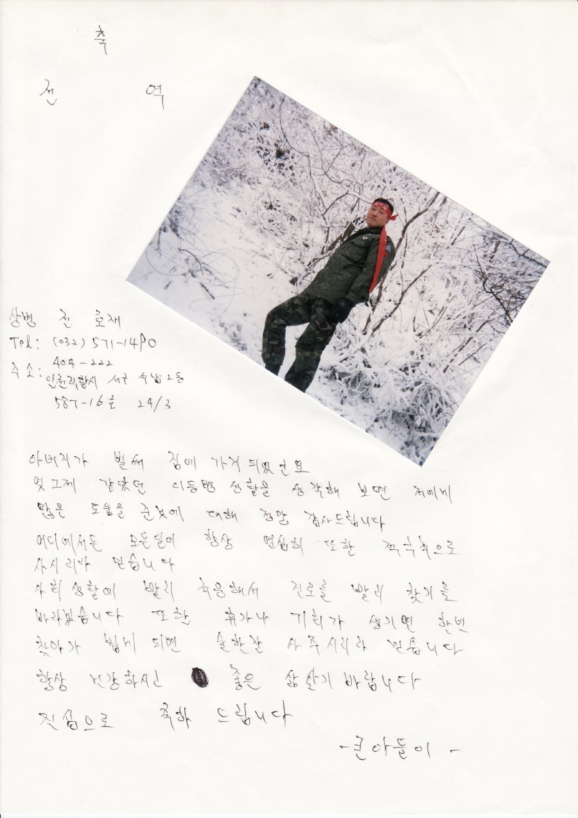 축
전 역
상병 전 호재
Tel: (032) 571-1490
404-222
주소: 인천광역시 서구 2동
587-16호 24/3
아버지가 벌써 집에 가게 되었군요
엊그제 같았던 이등병 생활을 생각해 보면 저에게
많은 도움을 준것에 대해 정말 감사드립니다
어디에서든 모든일에 항상 열심히 또한 적극적으로
사시리라 믿습니다
사회생활에 빨리 적응해서 진로를 빨리 찾기를
바라겠습니다 또한 휴가나 기회가 생기면 한번
찾아가 뵙게 되면 술한잔 사주시리라 믿습니다
항상 건강하시고 좋은 삶살기 바랍니다
진심으로 축하 드립니다
-큰아들이-